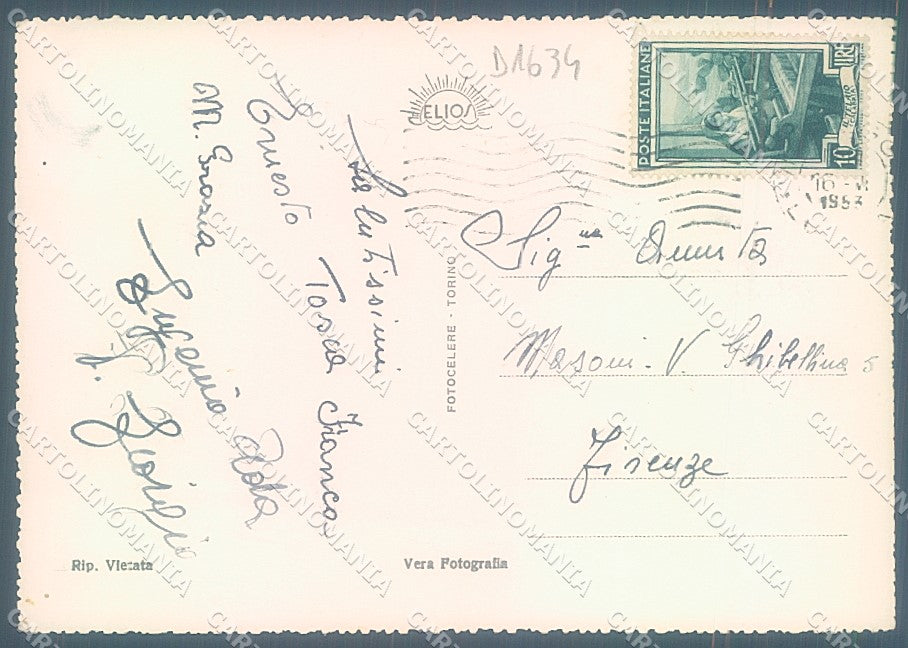 D1634
ELIOS
POSTE ITALIANE
LIRE
10
16 - VI
1953
Salutissimi
Tosca Franca
Ernesto
M. Grazia
Eugenia
Giorgio
Sig.na Annita
Masoni - V. Ghibellina 5
Firenze
FOTOCELERE - TORINO
Rip. Vietata
Vera Fotografia
CARTOLINOMANIA